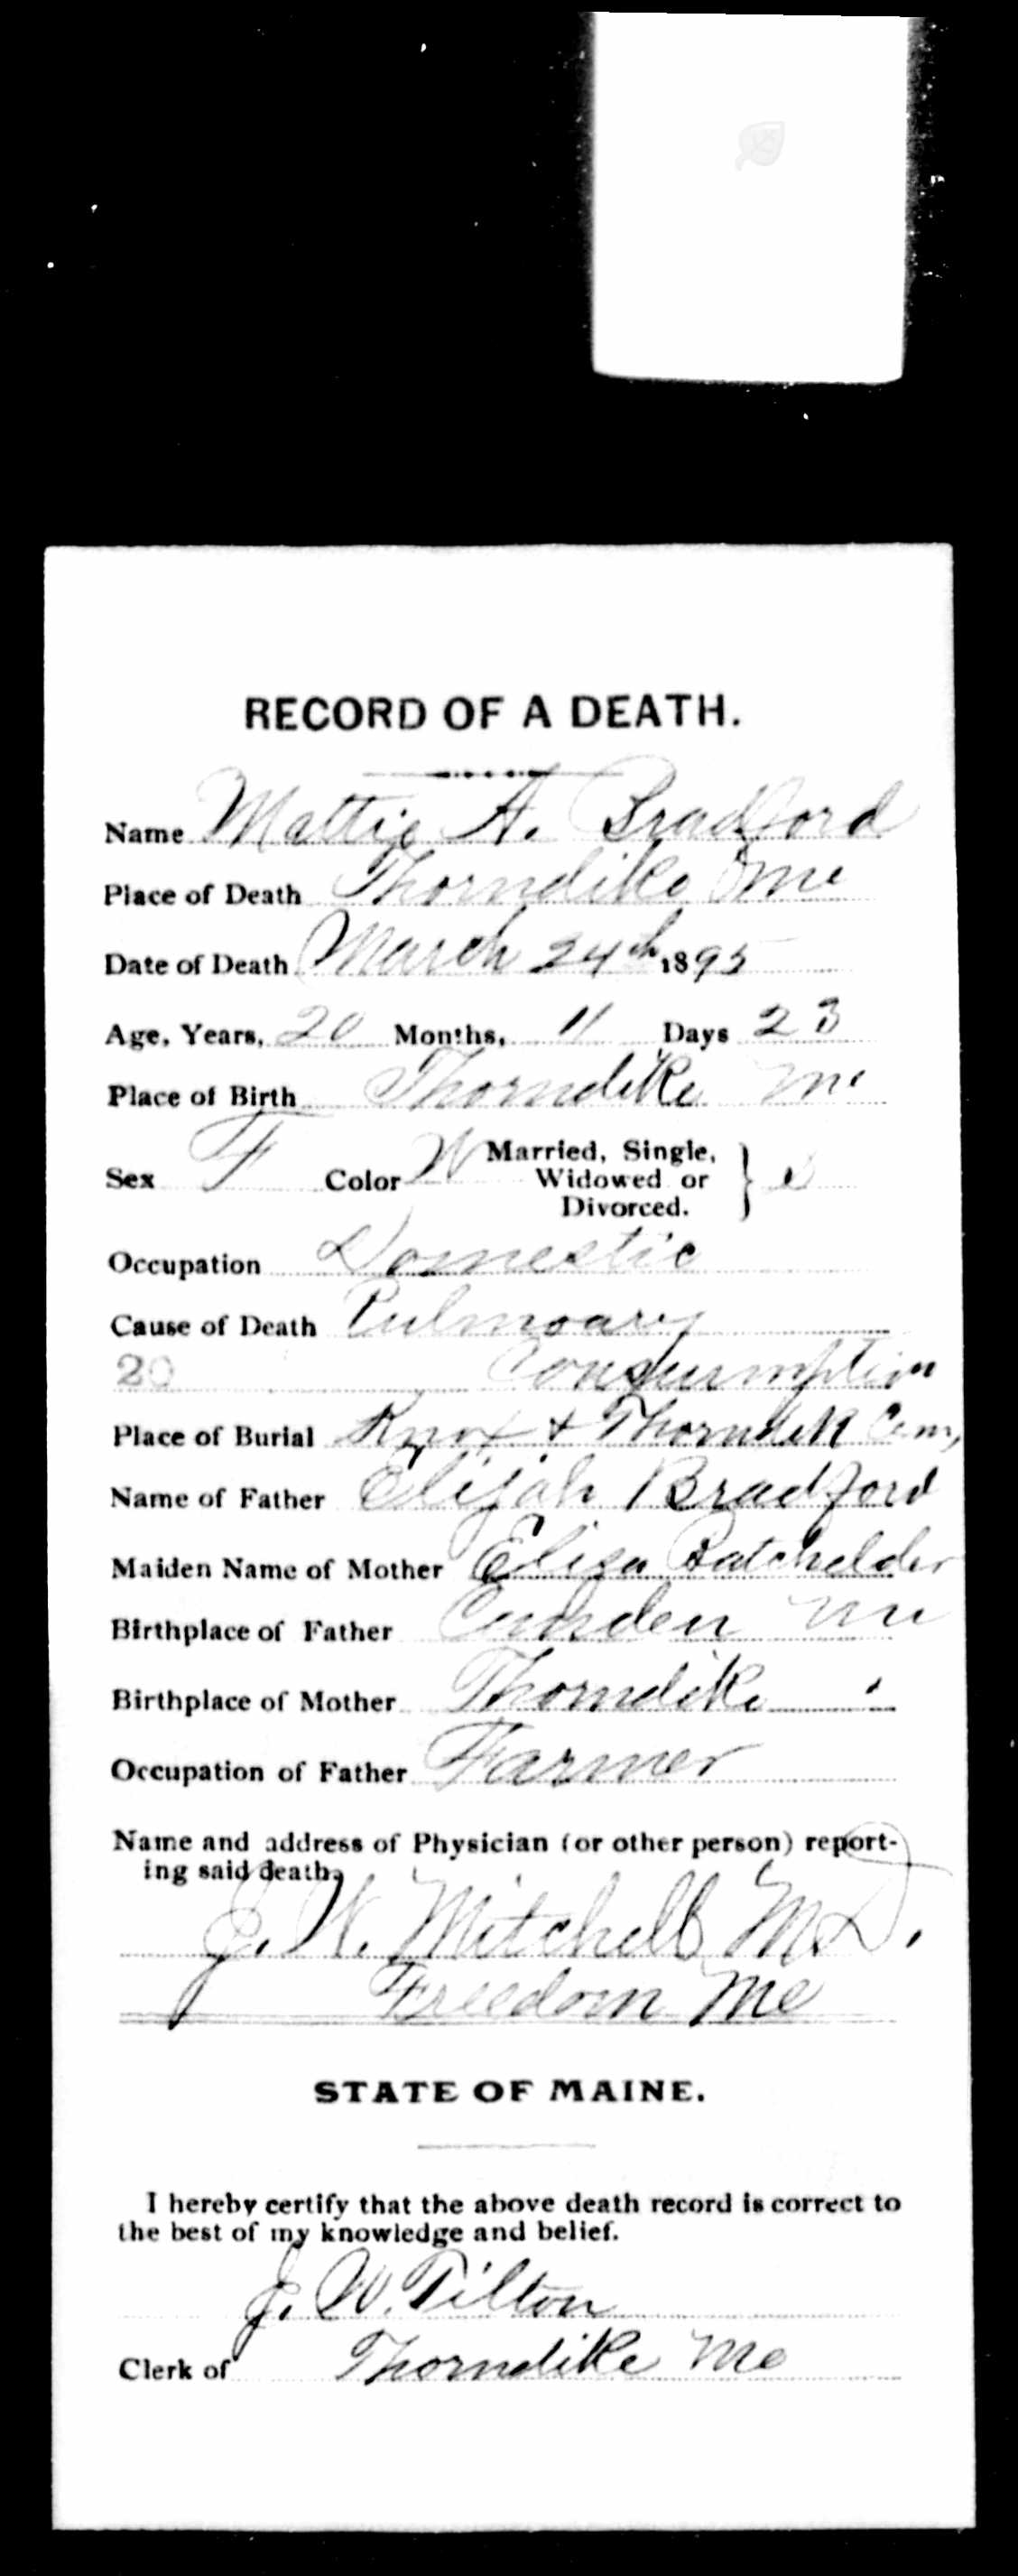 RECORD OF A DEATH.
Name Mattie A. Bradford
Place of Death Thorndike Me
Date of Death March 24th, 1895
Age, Years, 20 Months, 11 Days 23
Place of Birth Thorndike Me
Sex F Color W Married, Single, Widowed or Divorced. } S
Occupation Domestic
Cause of Death Pulmoary
20 Consumption
Place of Burial Knox & Thorndike Cem,
Name of Father Elijah Bradford
Maiden Name of Mother Eliza Batchelder
Birthplace of Father Camden Me
Birthplace of Mother Thorndike "
Occupation of Father Farmer
Name and address of Physician (or other person) report-
ing said death,
J. W. Mitchell M.D.
Freedom Me
STATE OF MAINE.
I hereby certify that the above death record is correct to
the best of my knowledge and belief.
J. W. Tilton
Clerk of Thorndike Me